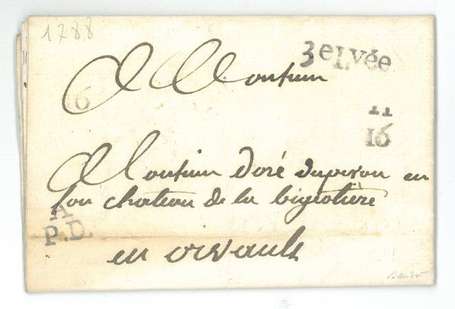 1788
3e Lvée
6
A Monsieur
11
16
Monsieur doré duperou en
son chateau de la bigiotiere
A
P.D.
en orvault